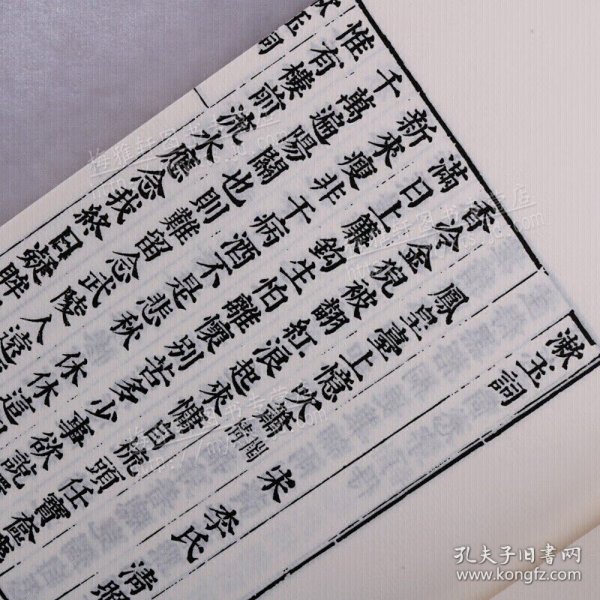 漱玉詞
宋 李氏 清照
鳳皇臺上憶吹簫 閨情
香冷金猊被翻紅浪起來慵自梳頭任寶奩
滿日上簾鉤生怕離懷別苦多少事欲說
新來瘦非干病酒不是悲秋 休休這
千萬遍陽關也則難留念武陵人遠
惟有樓前流水應念我終日凝眸
玉詞
孔夫子旧书网
www.kongfz.com